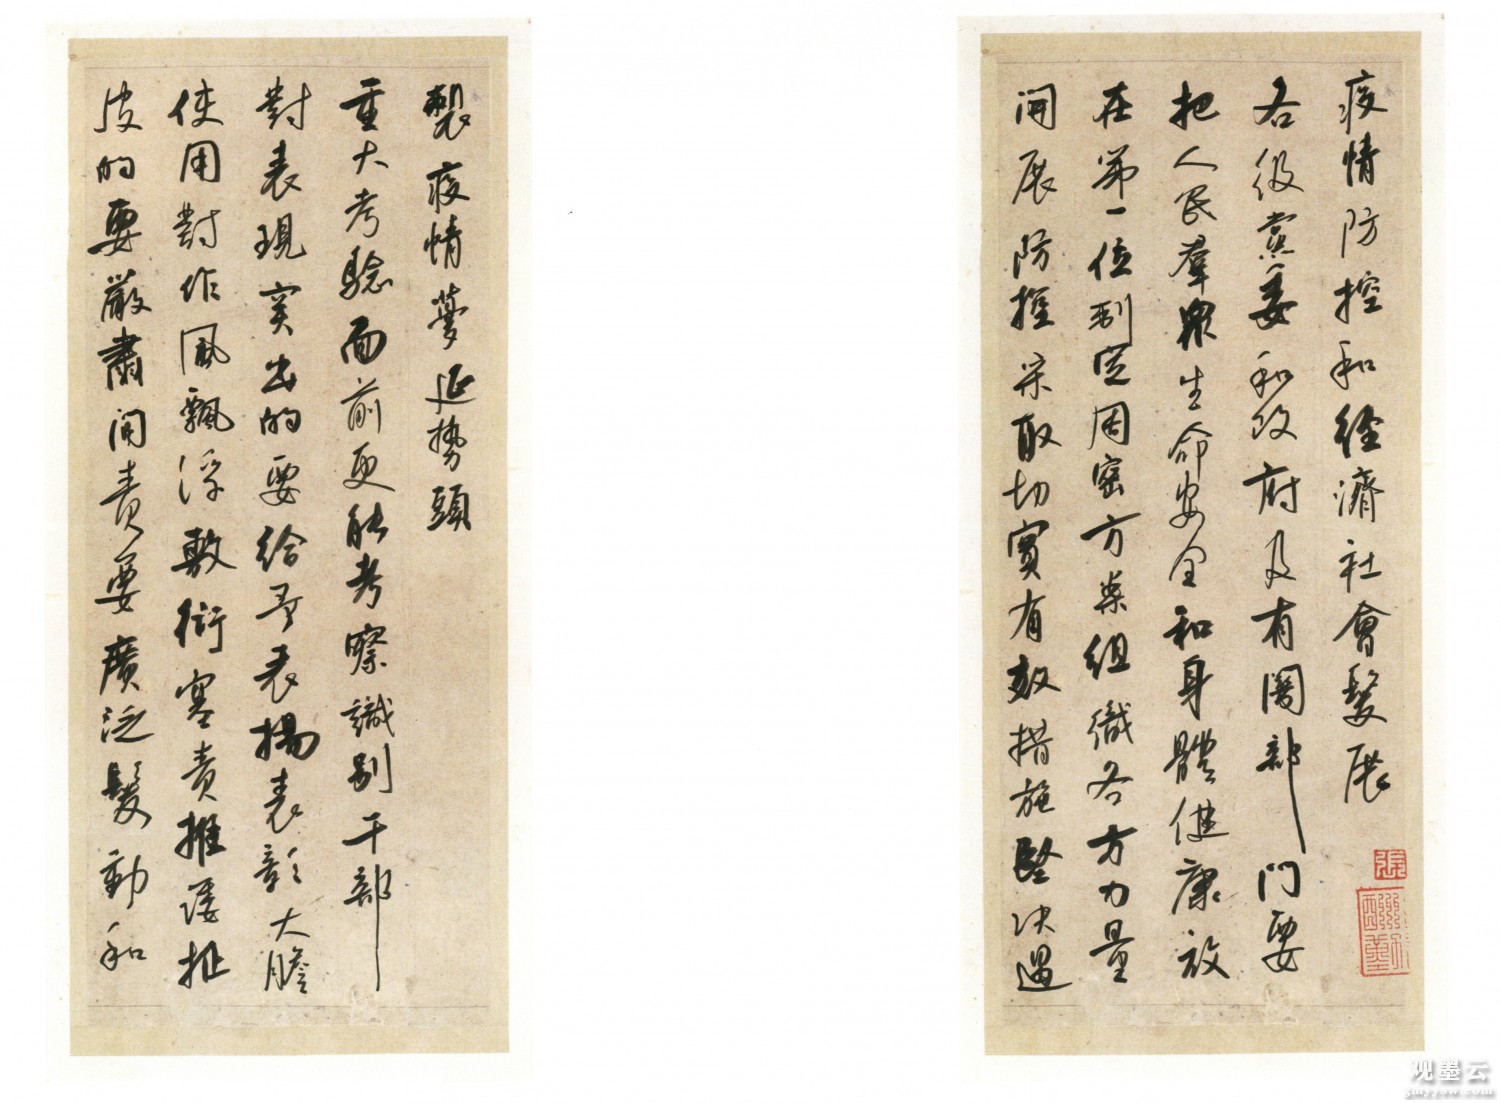 疫情防控和經濟社會髮展
各级黨委和政府及有関部門要
把人民羣眾生命安全和身體健康放
在第一位制定周密方案組織各方力量
開展防控采取切實有效措施堅决遏
製疫情蔓延势頭
重大考驗面前更能考察識别干部
對表現突出的要給予表揚表彰大膽
使用對作風飄浮敷衍塞責推諉扯
皮的要嚴肅問責要廣泛髮動和
观墨云